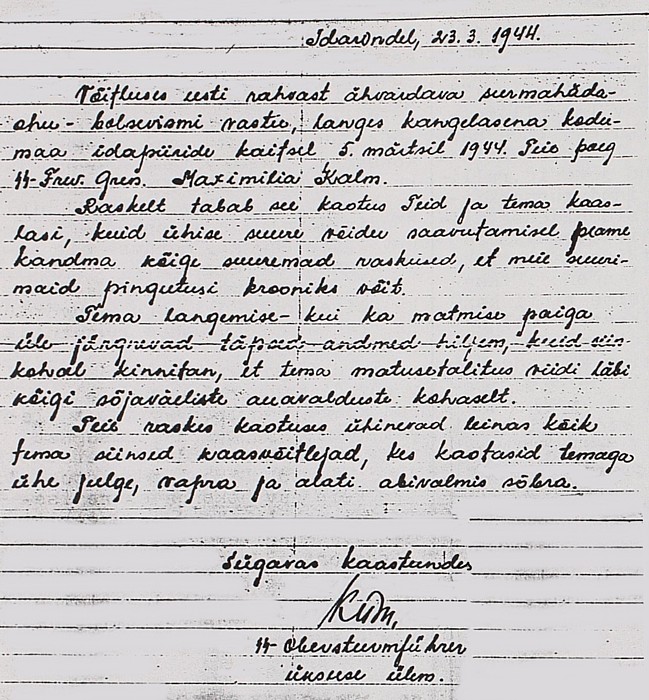 Idarindel, 23.3.1944.
Võitluses eesti rahvast ähvardava surmahäda-
ohu - bolsevismi vastu, langes kangelasena kodu-
maa idapiiride kaitsel 5. märtsil 1944. Teie poeg
SS-Frew. Gren. Maximilia Kalm.
Raskelt tabab see kaotus Teid ja tema kaas-
lasi, kuid ühise suure võidu saavutamisel peame
kandma kõige suuremad raskused, et meie suuri-
maid pingutusi krooniks võit.
Tema langemise- kui ka matmise paiga
üle järgnevad täpsed andmed hiljem, kuid siin-
kohal kinnitan, et tema matusetalitus viidi läbi
kõigi sõjaväeliste auavalduste kohaselt.
Teie raskes kaotuses ühinevad leinas kõik
tema siinsed kaasvõitlejad, kes kaotasid temaga
ühe julge, vapra ja alati abivalmis sõbra.
Sügavas kaastundes
SS-Obersturmführer
üksuse ülem.